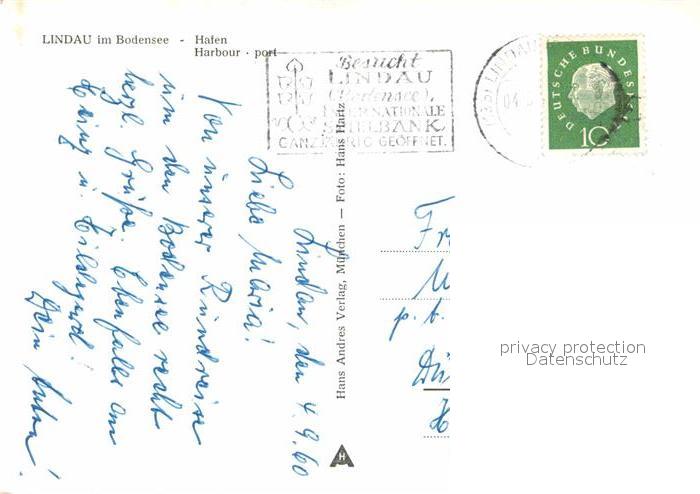 LINDAU im Bodensee - Hafen
Harbour · port
Besucht
LINDAU
(Bodensee),
INTERNATIONALE
SPIELBANK.
GANZJÄHRIG GEÖFFNET.
LINDAU
04.
DEUTSCHE BUNDESPOST
10
Lindau, den 4.9.60
Liebe Maria!
Von unserer Rundreise
um den Bodensee recht
herzl. Grüße. Ebenfalls an
Heinz u. Hildegund!
Dein
Hans Andres Verlag, München — Foto: Hans Hartz
H
Fr
M
p. b.
Dü
H
privacy protection
Datenschutz